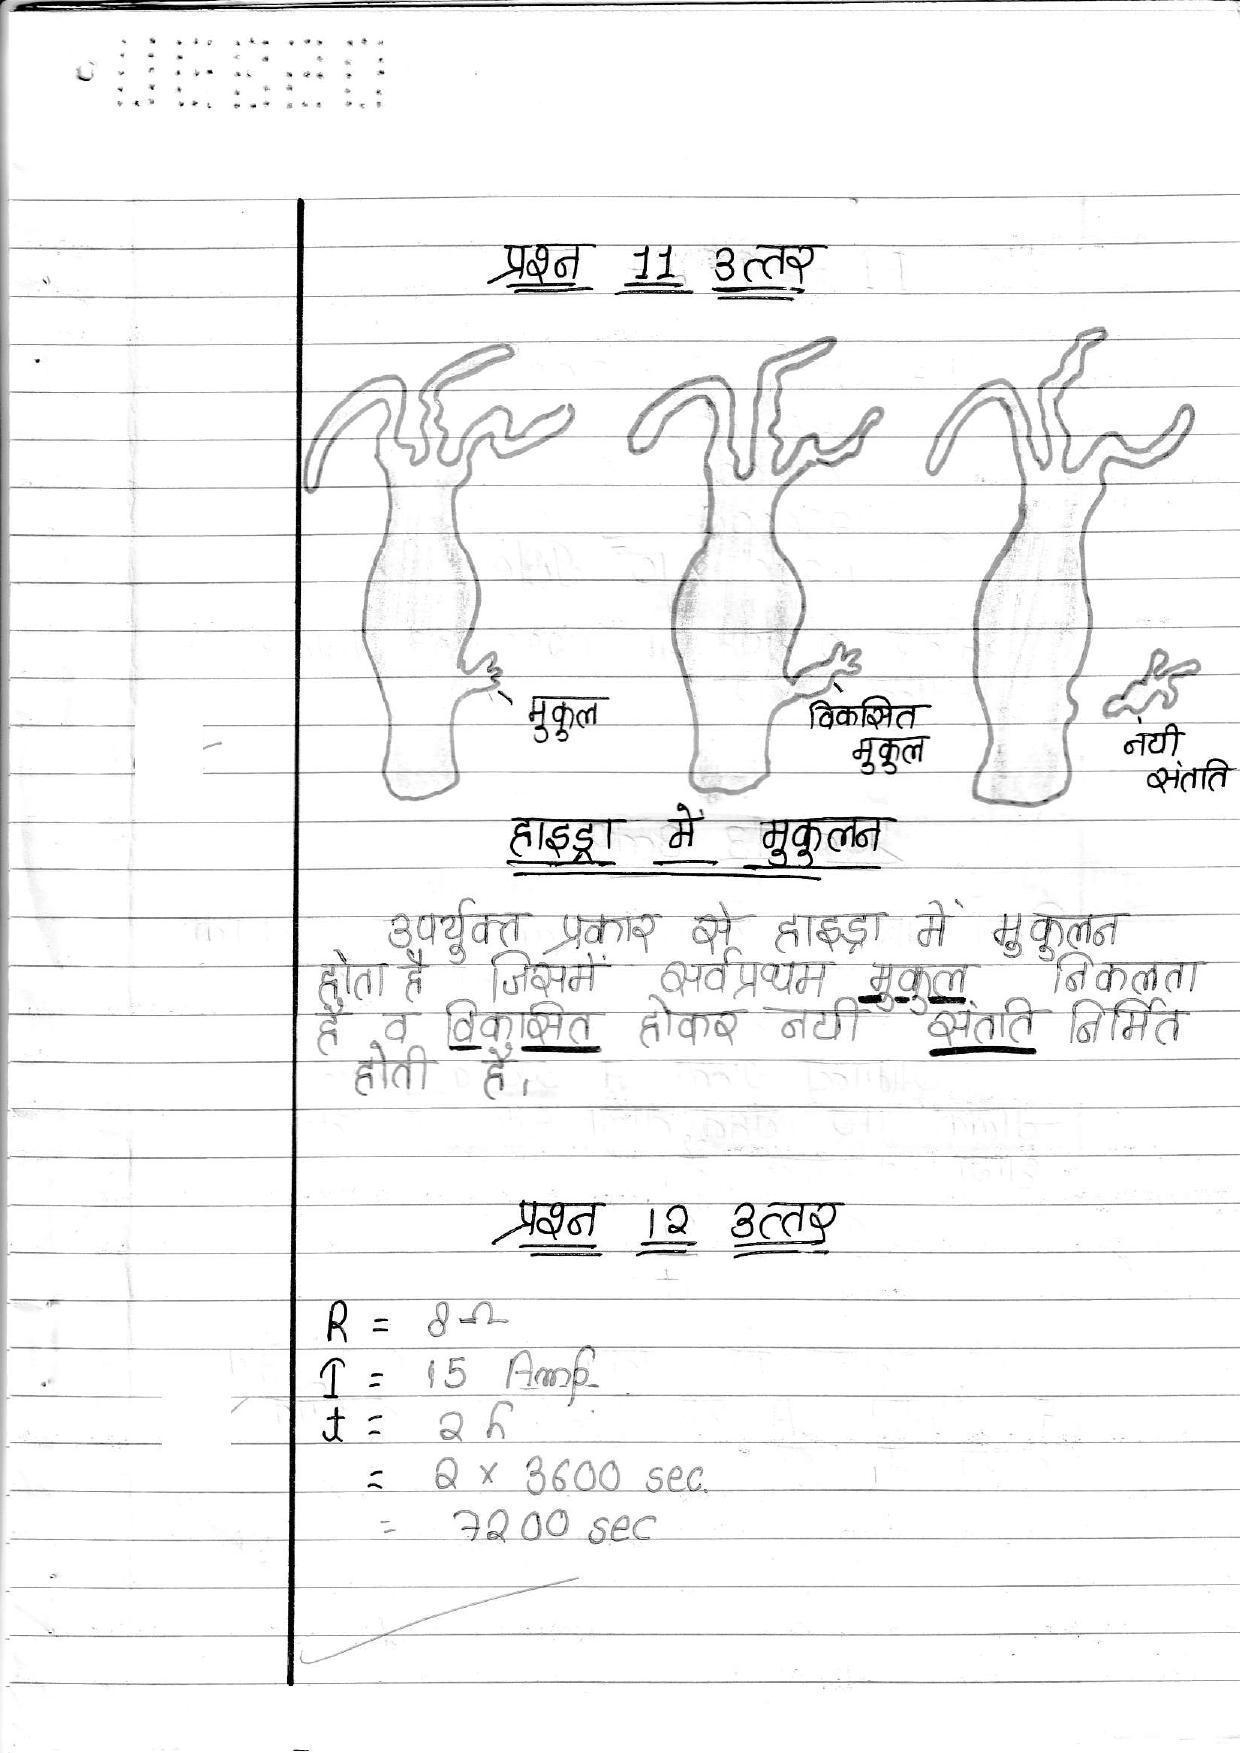 प्रश्न 11 उत्तर
मुकुल
विकसित
मुकुल
नयी
संतति
हाइड्रा में मुकुलन
उपर्युक्त प्रकार से हाइड्रा में मुकुलन
होता है जिसमें सर्वप्रथम मुकुल निकलता
है व विकसित होकर नयी संतति निर्मित
होती है,
प्रश्न 12 उत्तर
R = 8Ω
I = 15 Amp.
t = 2 h
= 2 × 3600 sec.
= 7200 sec